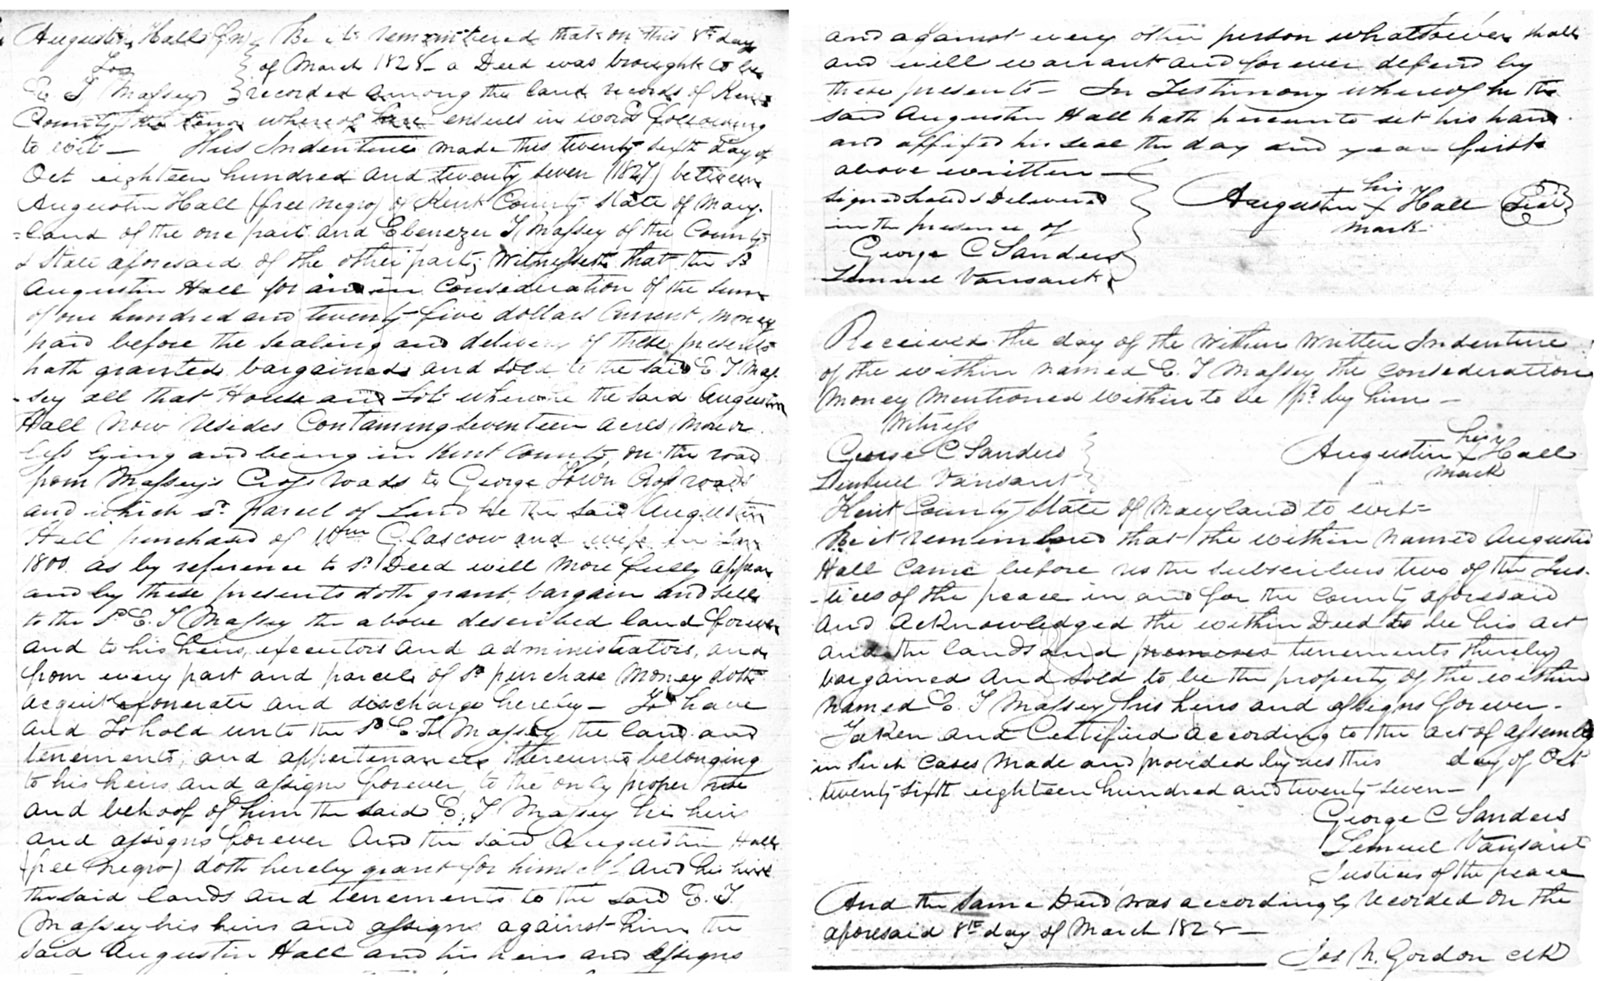 Augustin Hall (fn) } Be it remembered that on this 8th day
To } of March 1828 a Deed was brought to be
E. T. Massey } recorded among the land records of Kent
County the tenor whereof here ensues in words following
to wit — This Indenture made this twenty sixth day of
Oct eighteen hundred and twenty seven (1827) between
Augustin Hall (free negro) of Kent County State of Mary-
=land of the one part and Ebenezer T. Massey of the County
& State aforesaid of the other part; Witnesseth that the sd
Augustin Hall for and in Consideration of the sum
of one hundred and twenty five dollars Current money
paid before the sealing and delivery of these presents
hath granted bargained and sold to the said E. T. Mas-
-sey all that House and Lot wherein he the said Augustin
Hall now resides Containing seventeen acres more or
less lying and being in Kent County on the road
from Massey's Cross roads to George Town Cross roads
and which sd parcel of Land he the said Augustin
Hall purchased of Wm Glascow and wife in
1800 as by reference to sd Deed will more fully appear
and by these presents doth grant bargain and sell
to the sd E. T. Massey the above described land forever
and to his heirs, executors and administrators, and
from every part and parcel of sd purchase money doth
acquit exonerate and discharge hereby — To have
and To hold unto the sd E. T. Massey the land and
tenements, and appertenances thereunto belonging
to his heirs and assigns forever, to the only proper use
and behoof of him the said E. T. Massey his heirs
and assigns forever And the said Augustin Hall
(free negro) doth hereby grant for himself and his heirs
the said lands and tenements to the said E. T.
Massey his heirs and assigns against him the
said Augustin Hall and his heirs and assigns
and against every other person whatsoever shall
and will warrant and forever defend by
these presents — In Testimony whereof he the
said Augustin Hall hath hereunto set his hand
and affixed his seal the day and year first
above written —
Signed sealed & Delivered
in the presence of
George C Sanders
Lemuel Vansant
his
Augustin X Hall (Seal)
mark
Received the day of the within written Indenture
of the within named E. T Massey the consideration
money mentioned within to be pd by him —
Witness
George C Sanders
Lemuel Vansant
his
Augustin X Hall
mark
Kent County State of Maryland to wit=
Be it remembered that the within named Augustin
Hall came before us the subscribers two of the Jus-
-tices of the peace in and for the county aforesaid
and Acknowledged the within Deed to be his act
and the lands and premises tenements thereby
bargained and sold to be the property of the within
named E. T Massey his heirs and assigns forever -
Taken and Certified according to the act of assembly
in such cases made and provided by us this day of Oct
twenty sixth eighteen hundred and twenty seven —
George C Sanders
Lemuel Vansant
Justices of the peace
And the same Deed was accordingly recorded on the
aforesaid 8th day of March 1828 —
Jos N. Gordon clk